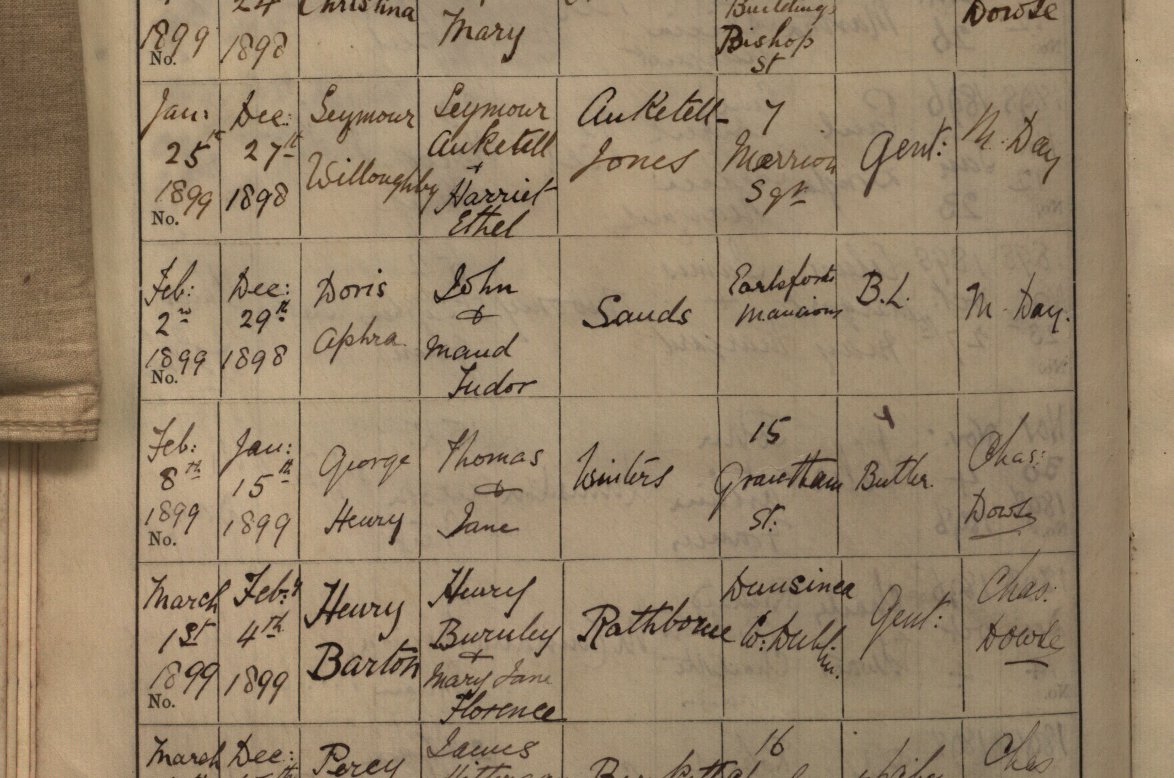 1899
No.
24
1898
Christina
Mary
Buildings
Bishop
St
Dowse
Jan:
25th
1899
No.
Dec:
27th
1898
Seymour
Willoughby
Seymour
Auketell
+
Harriet
Ethel
Auketell-
Jones
7
Merrion
Sqr
Gent:
M. Day
Feb:
2nd
1899
No.
Dec:
29th
1898
Doris
Aphra
John
&
Maud
Tudor
Sands
Earlsfort
Mansions
B.L.
M. Day.
Feb:
8th
1899
No.
Jan:
15th
1899
George
Henry
Thomas
&
Jane
Winters
15
Grantham
St:
Butler
Chas:
Dowse
March
1st
1899
No.
Feby
4th
1899
Henry
Barton
Henry
Burnley
+
Mary Jane
Florence
Rathborne
Dunsinea
Co: Dublin.
Gent:
Chas:
Dowse
March
Dec:
Percy
James
16
Chas